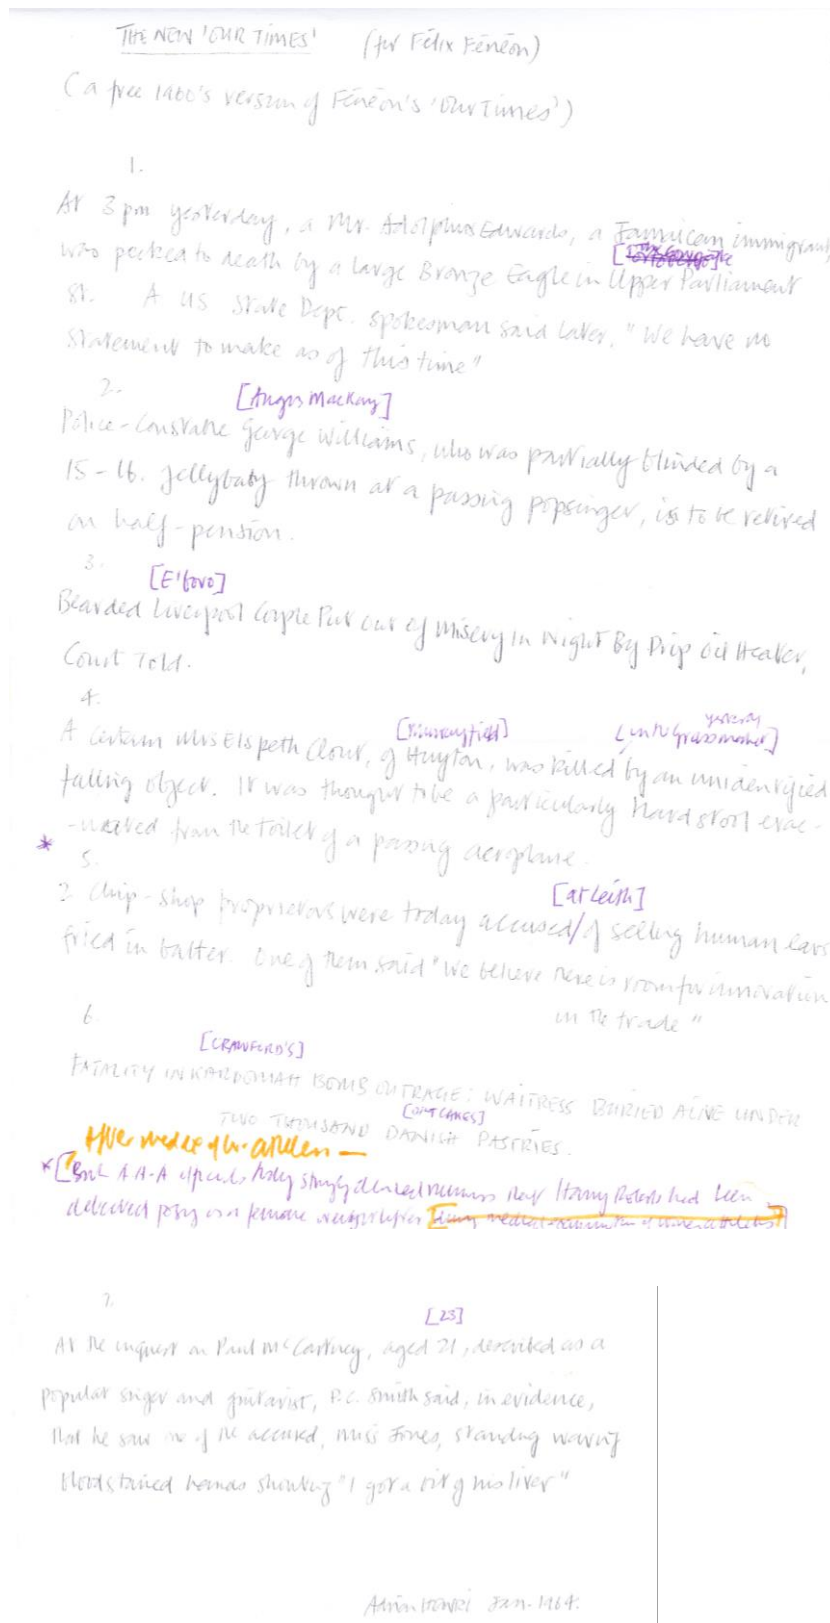 THE NEW 'OUR TIMES' (for Félix Fénéon)
(a free 1960's version of Fénéon's 'Our Times')
1.
At 3pm yesterday, a Mr. Adolphus Edwards, a Jamaican immigrant,
was pecked to death by a large Bronze Eagle in Upper Parliament
St. A US State Dept. spokesman said later, "We have no
statement to make as of this time"
2.
[Angus Mackay]
Police-Constable George Williams, who was partially blinded by a
15-lb. jellybaby thrown at a passing popsinger, is to be retired
on half-pension.
3.
[E'boro]
Bearded Liverpool Couple Put out of Misery In Night By Drip oil Heater,
Court Told.
4.
[Murrayfield] [in the Grassmarket] yesterday
A certain Mrs Elspeth Clout, of Huyton, was killed by an unidentified
falling object. It was thought to be a particularly hard stool evac-
-uated from the toilet of a passing aeroplane.
*
5.
[at Leith]
2 Chip-shop proprietors were today accused/of selling human ears
fried in batter. One of them said "We believe there is room for innovation
in the trade"
6.
[CRAWFORD'S]
FATALITY IN KARDOMAH BOMB OUTRAGE: WAITRESS BURIED ALIVE UNDER
[OATCAKES]
TWO THOUSAND DANISH PASTRIES.
After
*[ A.A.A officials today strongly denied rumours that Harry had been
detected posing as a female weightlifter
7.
[23]
At the inquest on Paul McCartney, aged 21, described as a
popular singer and guitarist, P.C. Smith said, in evidence,
that he saw one of the accused, Miss Jones, standing waving
bloodstained hands shouting "I got a bit of his liver"
Adrian Henri Jan. 1964.